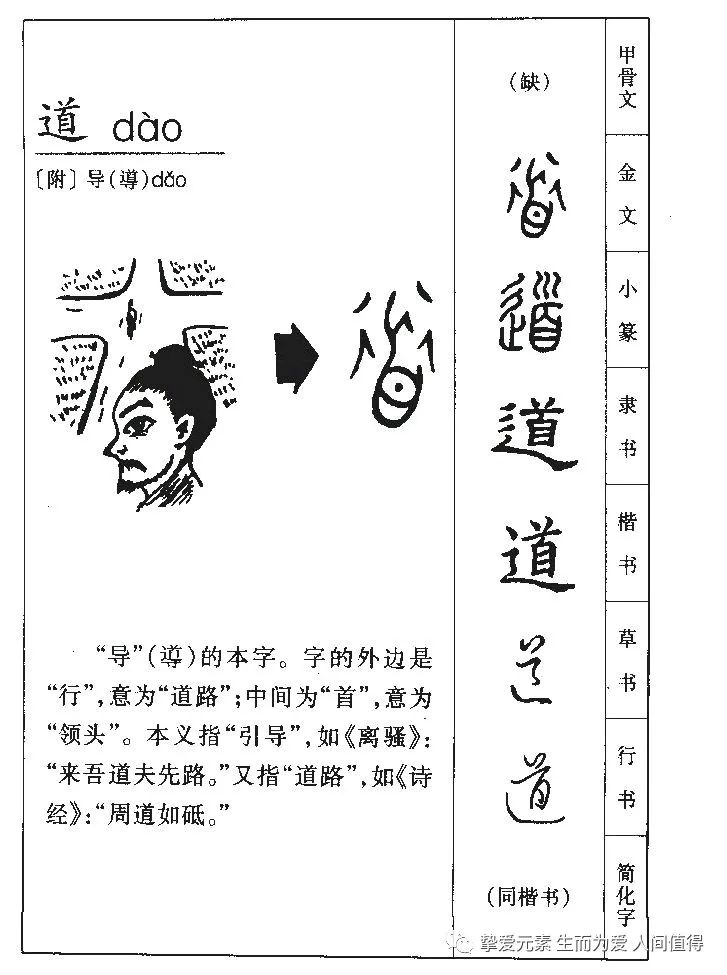 道 dào
〔附〕导(導)dǎo
“导”(導)的本字。字的外边是
“行”,意为“道路”;中间为“首”,意为
“领头”。本义指“引导”,如《离骚》:
“来吾道夫先路。”又指“道路”,如《诗
经》:“周道如砥。”
(缺)
甲骨文
金文
小篆
道
隶书
道
楷书
道
草书
道
行书
(同楷书)
简化字
挚爱元素 生而为爱 人间值得